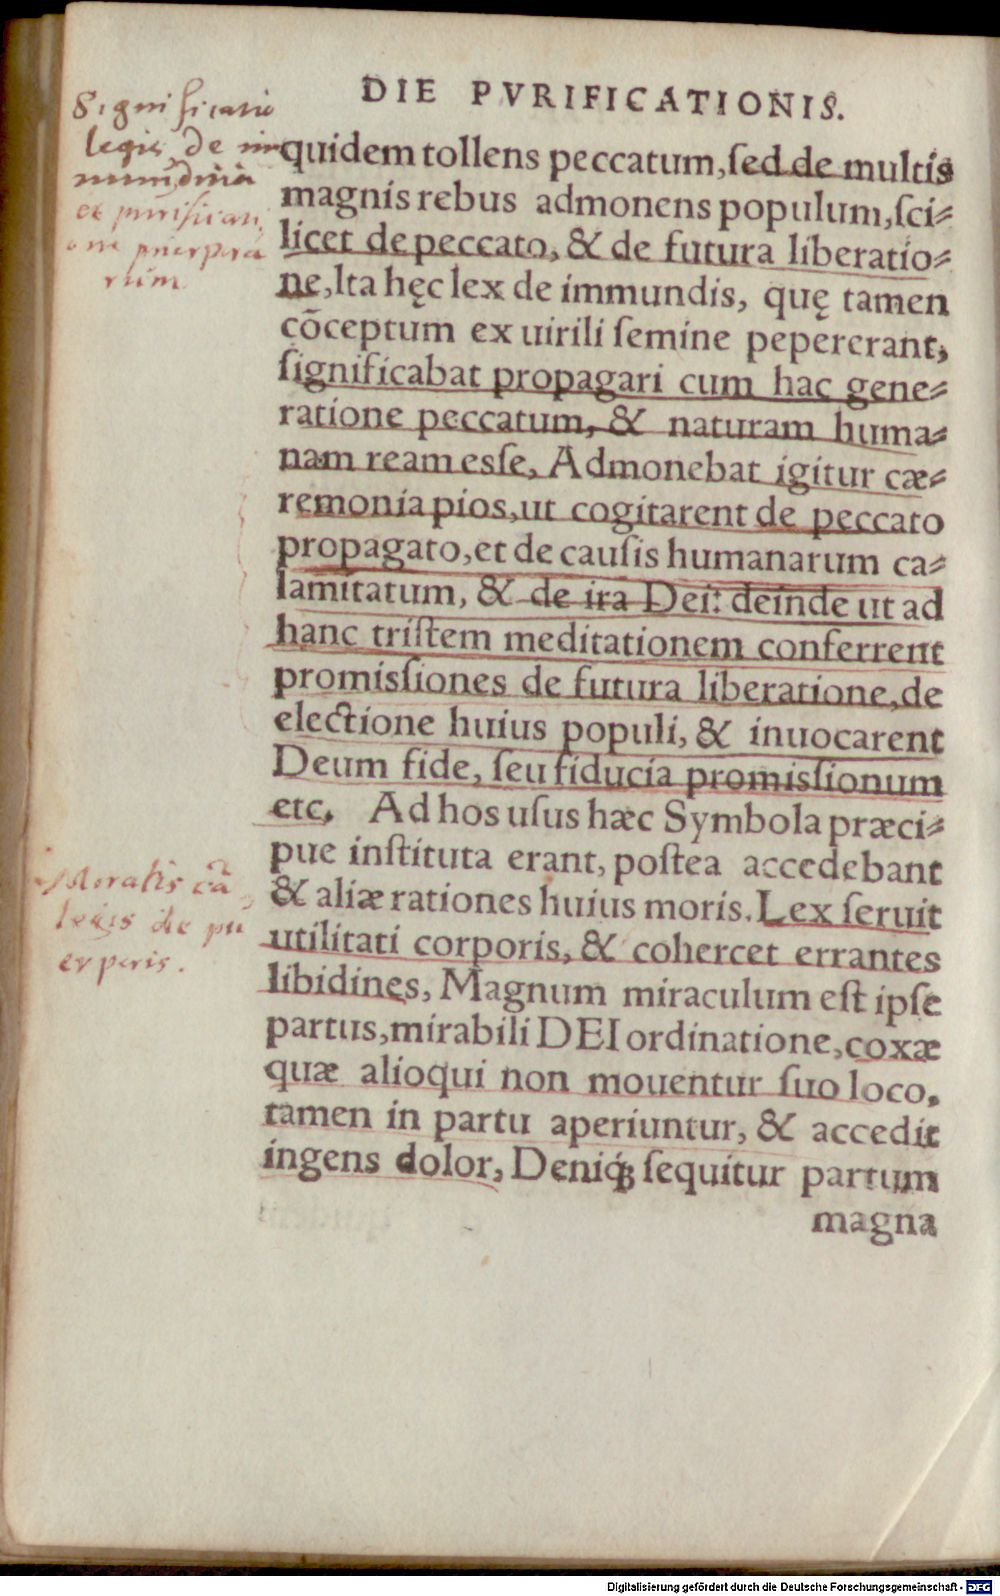 DIE PVRIFICATIONIS.
Significatio
legis de im
mundicia
et purificati
one puerpera
rum
quidem tollens peccatum, ſed de multis
magnis rebus admonens populum, ſci⸗
licet de peccato, & de futura liberatio⸗
ne, Ita hęc lex de immundis, quę tamen
cōceptum ex uirili ſemine pepererant,
ſignificabat propagari cum hac gene⸗
ratione peccatum, & naturam huma⸗
nam ream esſe, Admonebat igitur cæ⸗
remonia pios, ut cogitarent de peccato
propagato, et de cauſis humanarum ca⸗
lamitatum, & de ira Dei: deinde ut ad
hanc triſtem meditationem conferrent
promisſiones de futura liberatione, de
electione huius populi, & inuocarent
Deum fide, ſeu fiducia promisſionum
etc. Ad hos uſus hæc Symbola præci⸗
pue inſtituta erant, poſtea accedebant
& aliæ rationes huius moris. Lex ſeruit
utilitati corporis, & cohercet errantes
libidines, Magnum miraculum eſt ipſe
partus, mirabili DEI ordinatione, coxæ
quæ alioqui non mouentur ſuo loco,
tamen in partu aperiuntur, & accedit
ingens dolor, Deniq́ꝫ ſequitur partum
magna
Moralis cā
legis de pu
erperis.
Digitalisierung gefördert durch die Deutsche Forschungsgemeinschaft - DFG